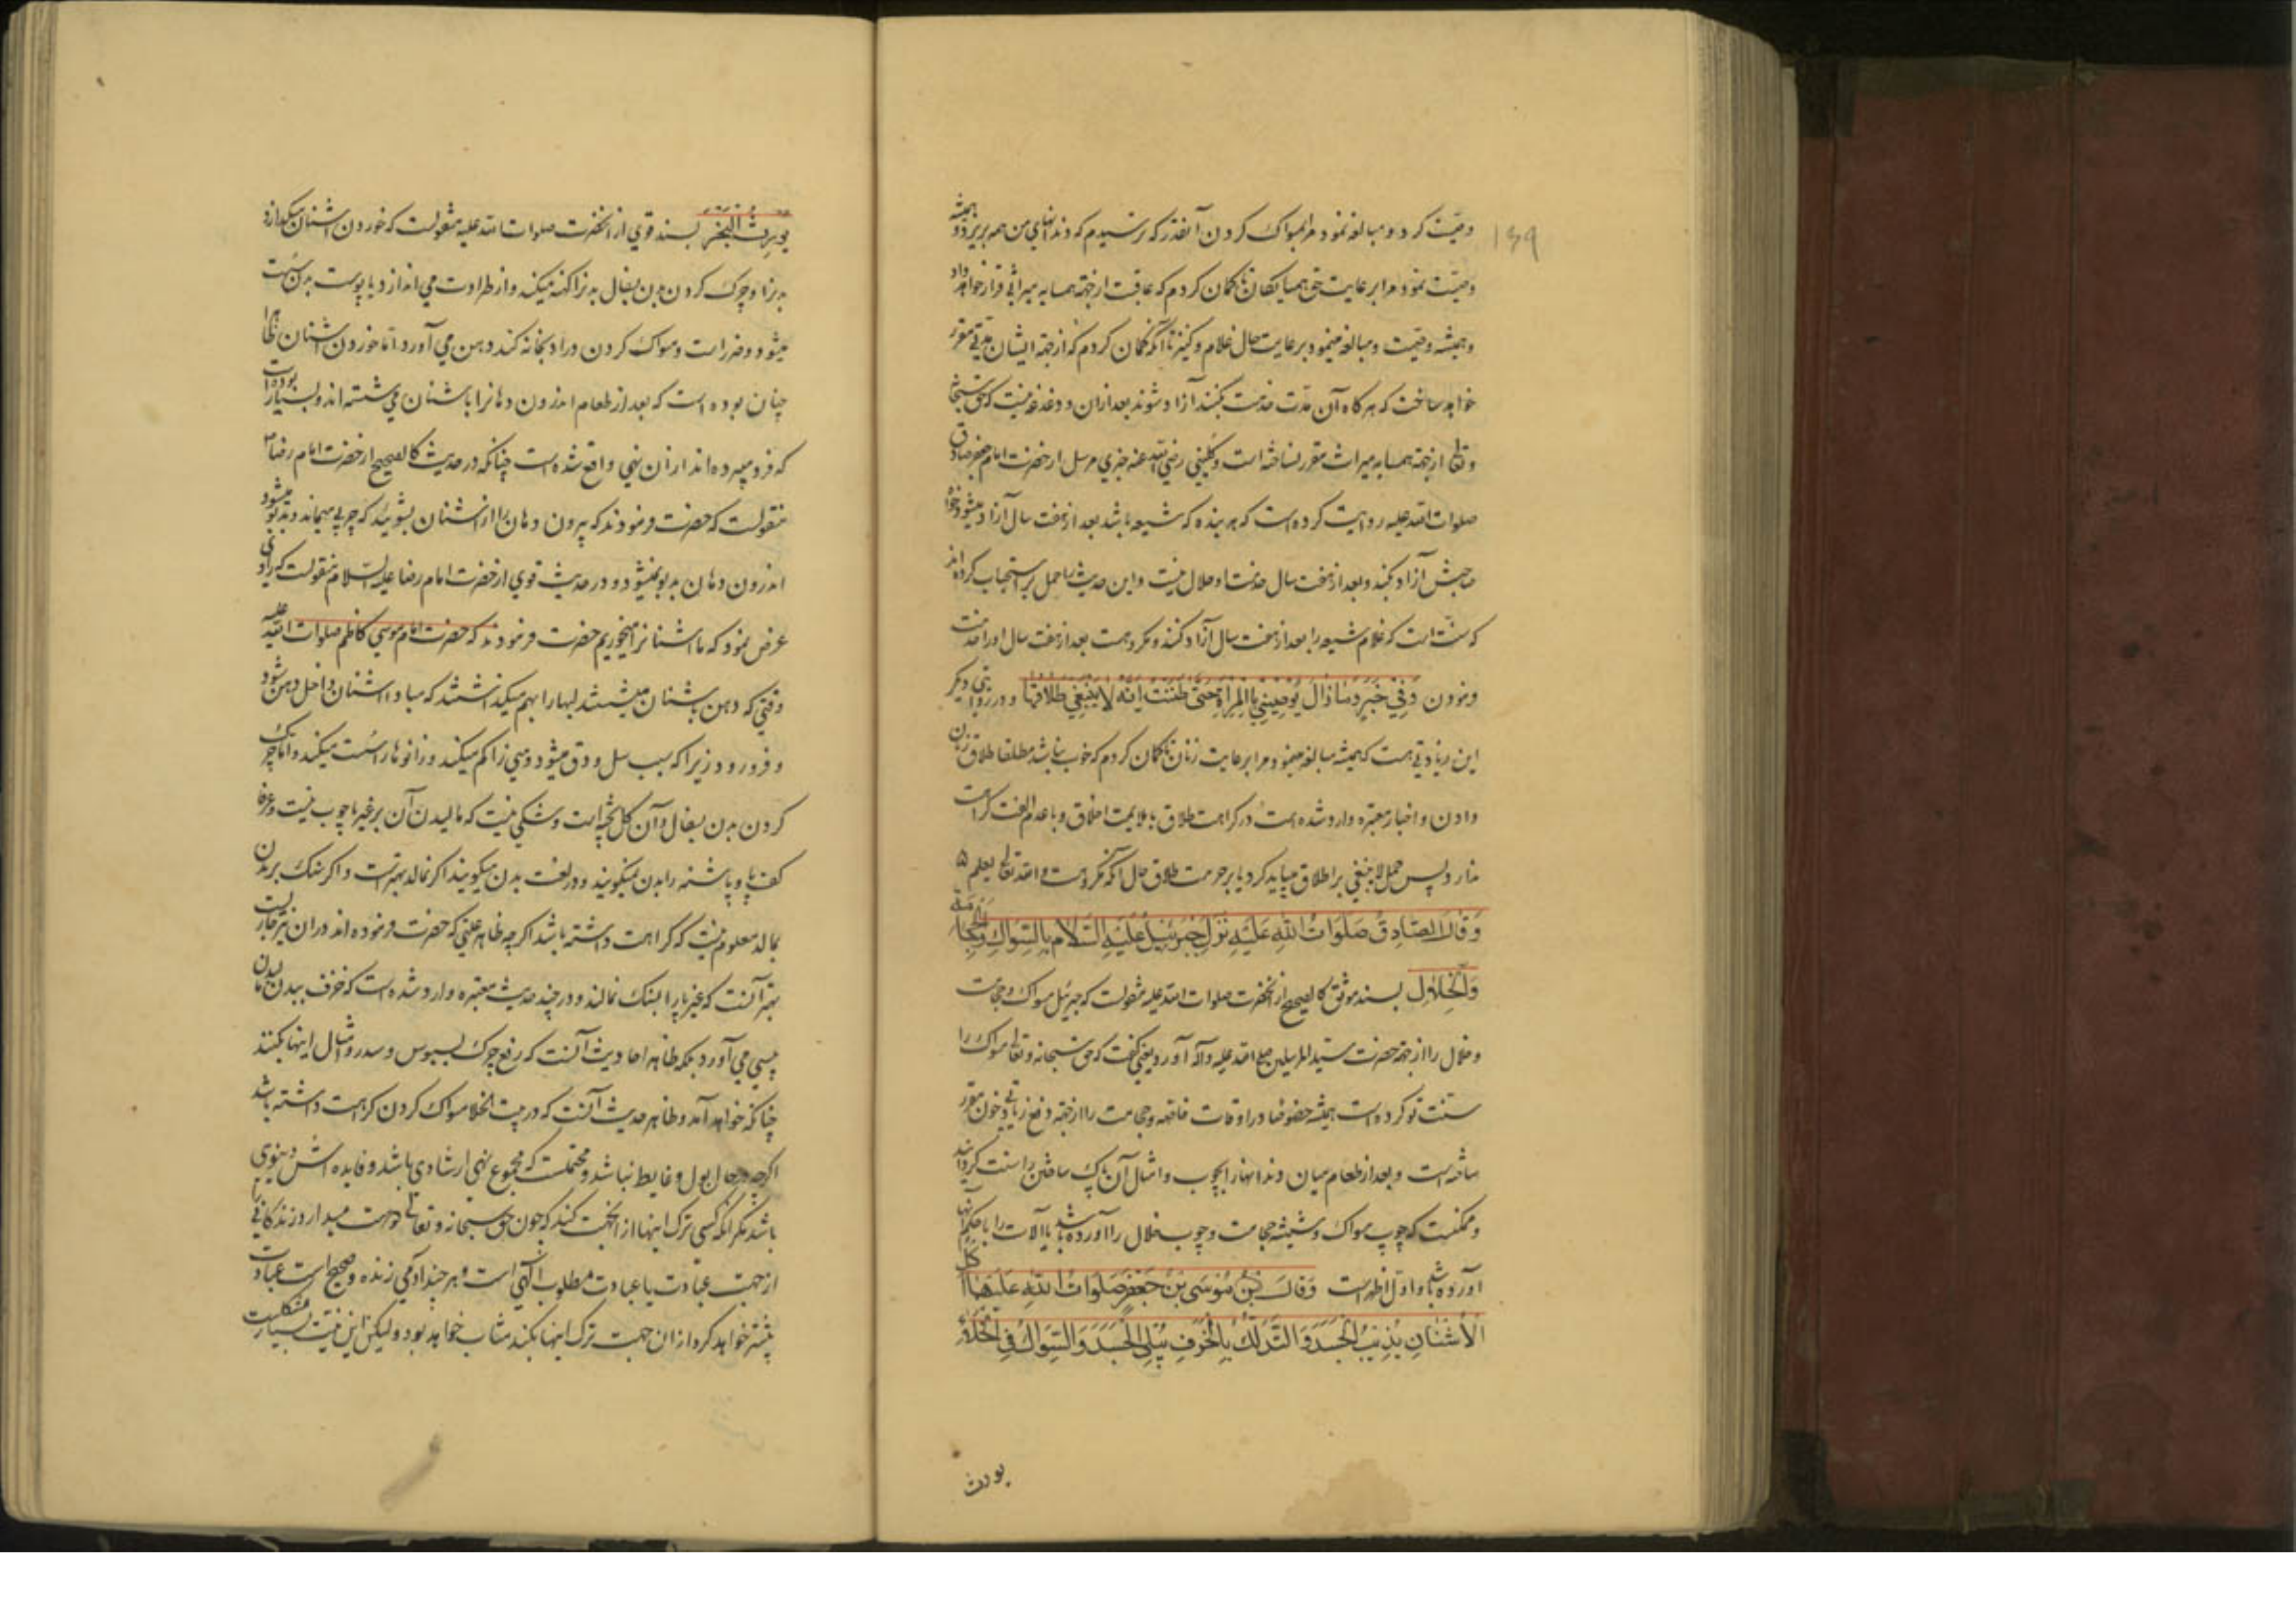 ۱۶۹
وصیت کرد و مبالغه نمود مرا بمسواک کردن آنقدر که ترسیدم که دندانهای من همه بریزد و همیشه
وصیت نمود مرا برعایت حق همسایگان تا گمان کردم که عاقبت از جهة همسایه میراثی قرار خواهد داد
و همیشه وصیت و مبالغه مینمود برعایت حال غلام و کنیز تا آنکه گمان کردم که از جهة ایشان مدتی مقرر
خواهد ساخت که هر گاه آن مدت خدمت بکنند آزاد شوند بعد ازان و دغدغه نیست که حق سبحانه
و تعالی از جهة همسایه میراث مقرر نساخته است و کلینی رضی الله عنه خبری مرسل از حضرت امام جعفر صادق
صلوات الله علیه روایت کرده است که هر بنده که شیعه باشد بعد از هفت سال آزاد میشود خواه
صاحبش آزاد بکند و بعد از هفت سال خدمت او حلال نیست و این حدیث را حمل بر استحباب کرده اند
که سنت است که غلام شیعه را بعد از هفت سال آزاد کنند و مکروهست بعد از هفت سال او را خدمت
فرمودن وَفِي خَبَرٍ مَا زَالَ يُوصِينِي بِالْمَرْأَةِ حَتّى ظَنَنْتُ اَنَّهُ لاَ يَنْبَغِي طَلاَقُهَا و در روایتی دیگر
این زیادتی هست که همیشه مبالغه مینمود مرا برعایت زنان تا گمان کردم که خوب نباشد مطلقا طلاق زنان
دادن و اخبار معتبره وارد شده است در کراهت طلاق با ملایمت اخلاق و با عدم الفت کراهت
ندارد پس حمل لا ینبغی بر اطلاق میباید کرد یا بر حرمت طلاق حال آنکه مکروهست والله تعالی یعلم
وَقَالَ الصَّادِقُ صَلَوَاتُ اللهِ عَلَيْهِ نَزَلَ جَبْرَئِيلُ عَلَيْهِ السَّلاَم بِالسِّوَاكِ وَالْحِجَامَةِ
وَالْخِلاَلِ بسند موثق کالصحیح از آنحضرت صلوات الله علیه منقولست که جبرئیل مسواک و حجامت
و خلال را از جهة حضرت سید المرسلین صلی الله علیه و آله آورد یعنی گفت که حق سبحانه و تعالی مسواک را
سنت تو کرده است همیشه خصوصا در اوقات فاضله و حجامت را از جهة دفع زیادتی خون مقرر
ساخته است و بعد از طعام میان دندانها را بچوب و امثال آن پاک ساختن را سنت کرد
و ممکنست که چوب مسواک و شیشه حجامت و چوب خلال را آورده باشد یا آلات را با حکم آنها
آورده باشد و اول اظهر است وَقَالَ مُوسَى بْنُ جَعْفَرٍ صَلَوَاتُ اللهِ عَلَيْهِمَا اَكْلُ
الْاُشْنَانِ يُذِيبُ الْجَسَدَ وَالتَّدَلُّكُ بِالْخَزَفِ يُبْلِي الْجَسَدَ وَالسِّوَاكُ فِي الْخَلاَءِ
یورث
يُورِثُ الْبَخَرَ بسند قوی از آنحضرت صلوات الله علیه منقولست که خوردن اشنان میگدازد
بدنرا و چرک کردن بدن بسفال بدنرا کهنه میکند و از طراوت می اندازد یا پوست بدن سست
میشود و ضرر است و مسواک کردن در ادبخانه گند دهن می آورد اما خوردن اشنان ظاهرا
چنان بوده است که بعد از طعام اندرون دهانرا باشنان می شسته اند و بسیار بوده است
که فرو میبرده اند ازان نهی واقع شده است چنانکه در حدیث کالصحیح از حضرت امام رضا
منقولست که حضرت فرمودند که بیرون دهان را از اشنان بشویید که چربی میماند و بدبو میشود
اندرون دهان بدبو نمیشود و در حدیث قوی از حضرت امام رضا علیه السلام منقولست که راوی
عرض نمود که ما اشنانرا میخوریم حضرت فرمودند که حضرت امام موسی کاظم صلوات الله علیه
وقتی که دهن باشنان میشستند لبها را بهم میگذاشتند که مبادا اشنان داخل دهن شود
و فرو رود زیرا که سبب سل و دق میشود و منی را کم میکند و زانوها را سست میکند و اما چرک
کردن بدن بسفال و آن گل پخته است و شکی نیست که مالیدن آن بر غیر پا خوب نیست و عرفا
کف پا و پاشنه را بدن نمیگویند و در لغت بدن میگویند اگر نمالد بهتر است و اگر سنگ بر بدن
بمالد معلوم نیست که کراهت داشته باشد اگر چه ظاهر علتی که حضرت فرموده اند دران نیز جاریست
بهتر آنست که غیر پا را بسنگ نمالند و در چند حدیث معتبره وارد شده است که خزف ببدن مالیدن
پیسی می آورد بلکه ظاهر احادیث آنست که رفع چرک بسبوس و سدر و امثال اینها بکنند
چنانکه خواهد آمد و ظاهر حدیث آنست که در بیت الخلا مسواک کردن کراهت داشته باشد
اگر چه در حال بول و غایط نباشد و محتملست که مجموع نهی ارشادی باشد و فایده اش دنیوی
باشد مگر آنکه کسی ترک اینها از آنجهت کند که چون حق سبحانه و تعالی دوست میدارد زندگانی را
از جهت عبادت یا عبادت مطلوب الهی است و هر چند آدمی زنده و صحیح است عبادت
بیشتر خواهد کرد ازان جهت ترک اینها بکند مثاب خواهد بود و لیکن این نیت بسیار مشکلست